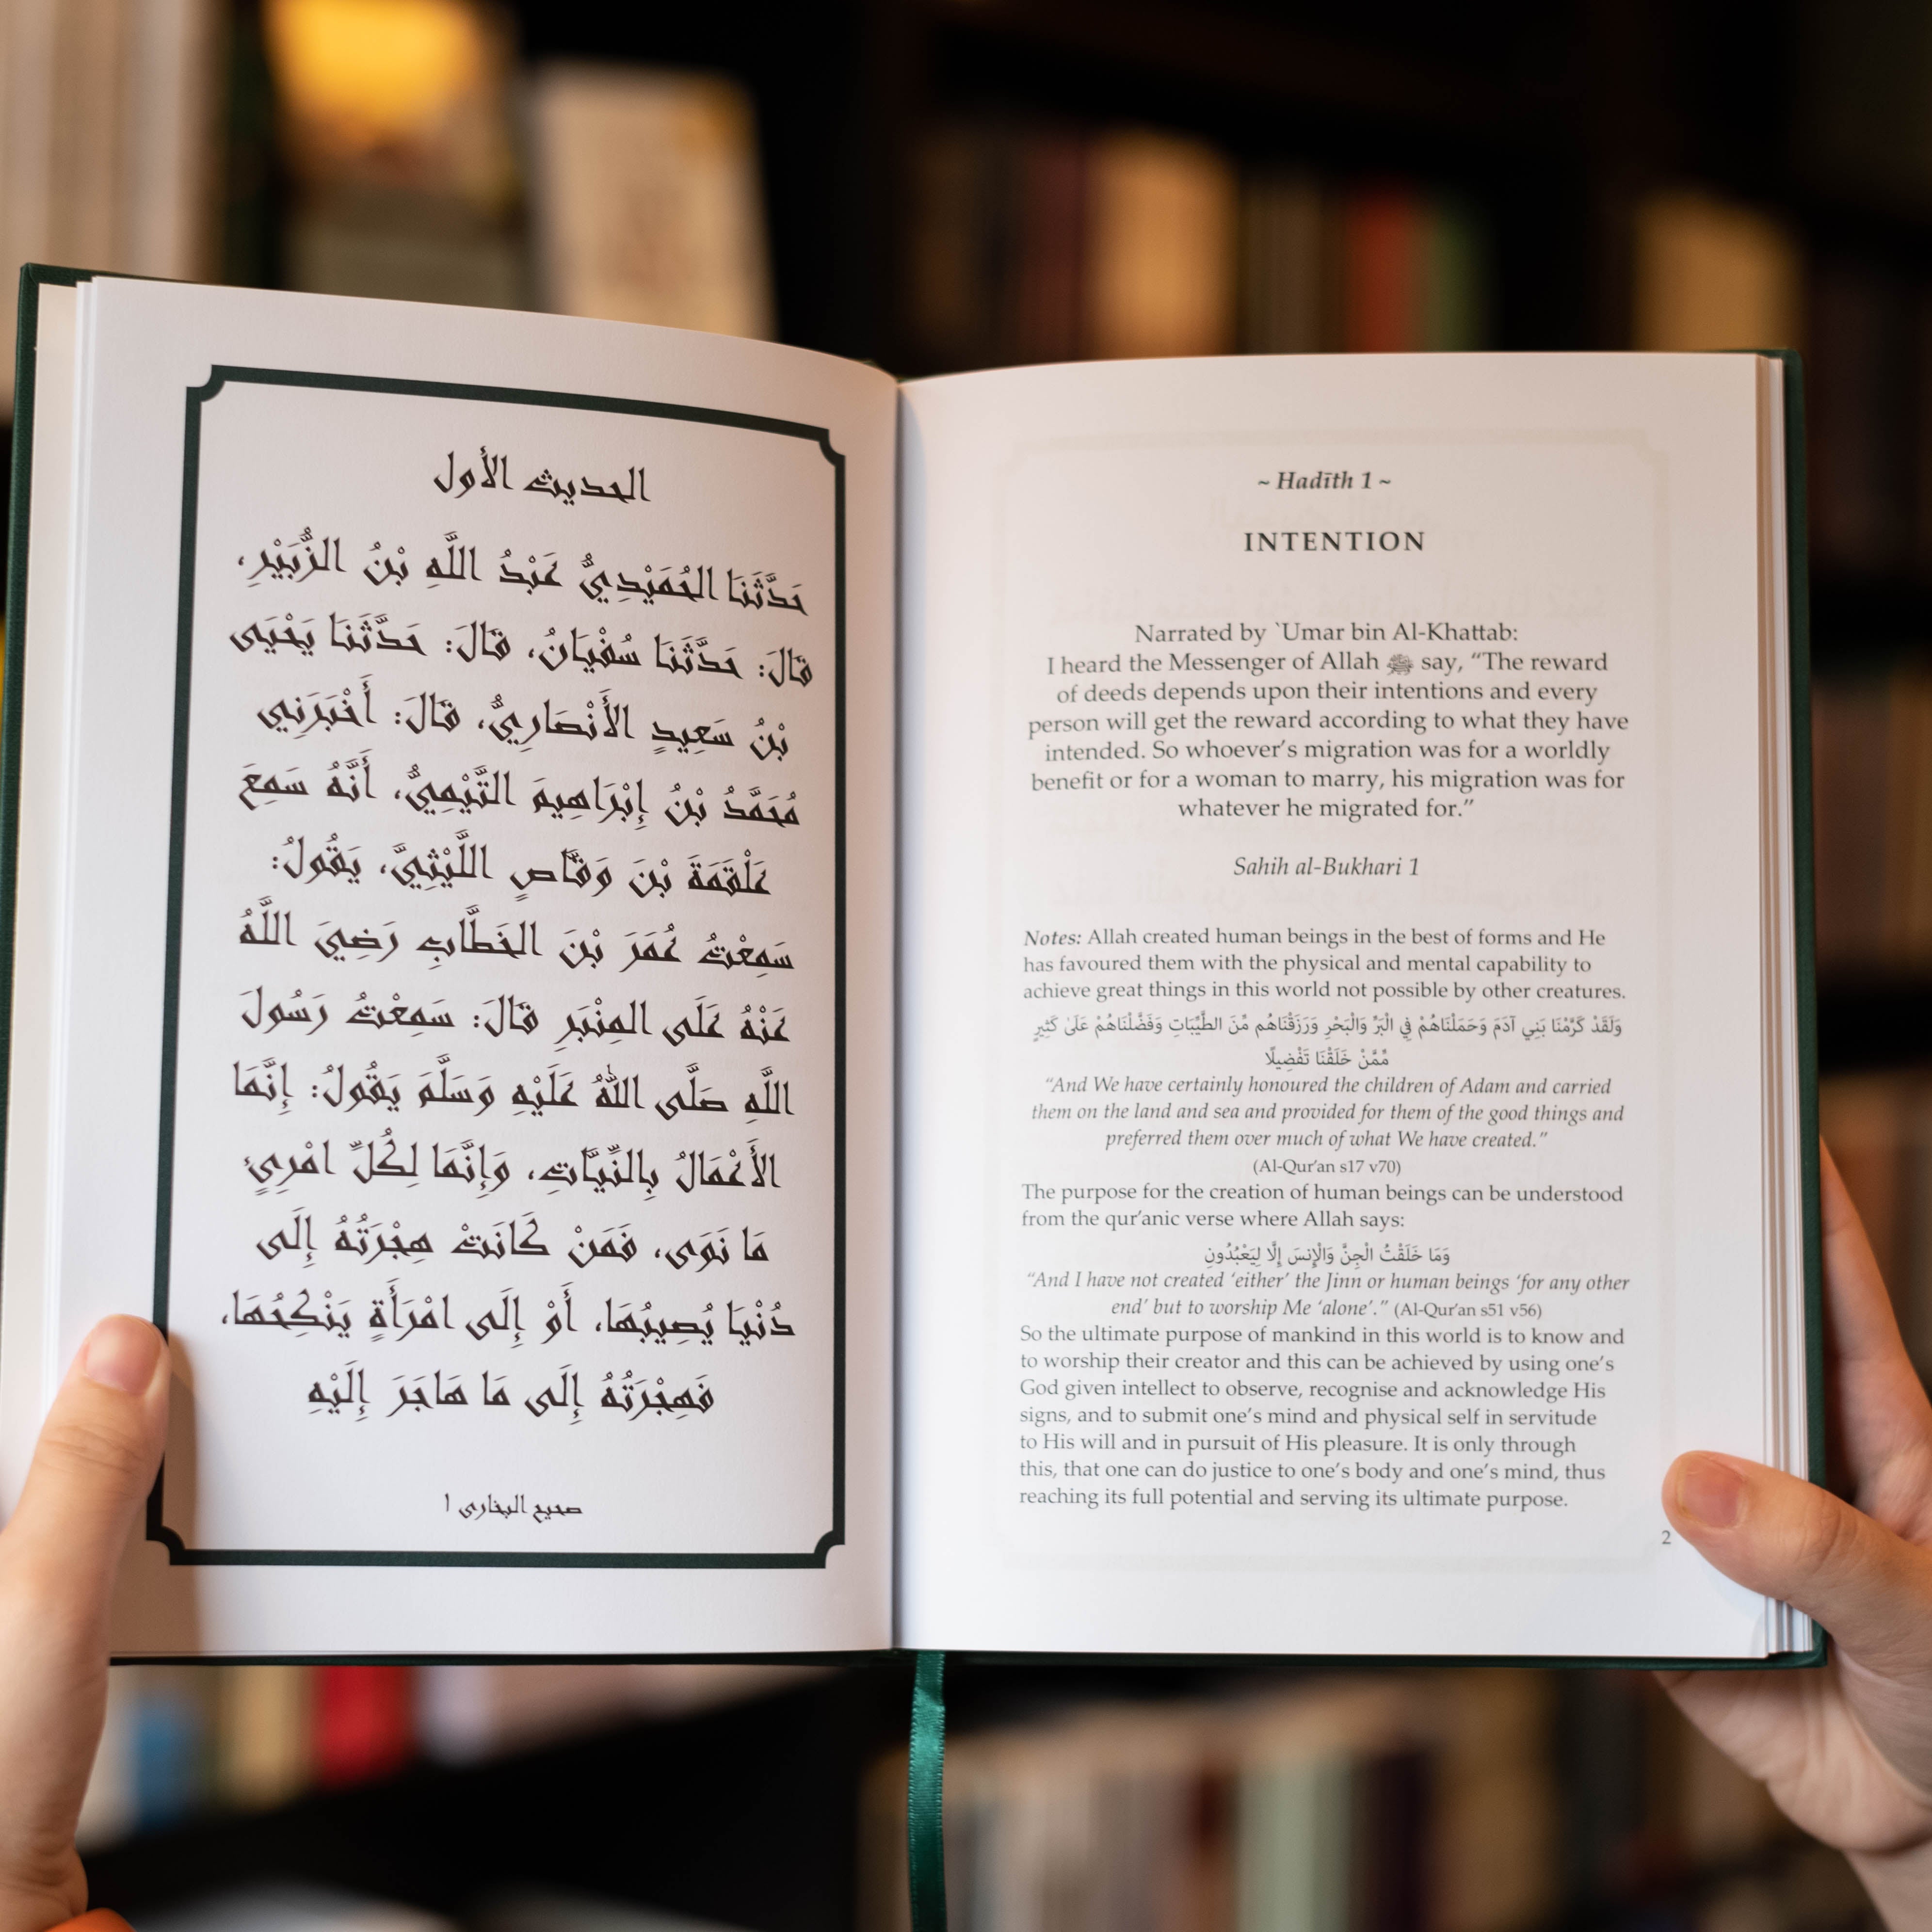 الحديث الأول
حَدَّثَنَا الحُمَيْدِيُّ عَبْدُ اللَّهِ بْنُ الزُّبَيْرِ،
قَالَ: حَدَّثَنَا سُفْيَانُ، قَالَ: حَدَّثَنَا يَحْيَى
بْنُ سَعِيدٍ الأَنْصَارِيُّ، قَالَ: أَخْبَرَنِي
مُحَمَّدُ بْنُ إِبْرَاهِيمَ التَّيْمِيُّ، أَنَّهُ سَمِعَ
عَلْقَمَةَ بْنَ وَقَّاصٍ اللَّيْثِيَّ، يَقُولُ:
سَمِعْتُ عُمَرَ بْنَ الخَطَّابِ رَضِيَ اللَّهُ
عَنْهُ عَلَى المِنْبَرِ قَالَ: سَمِعْتُ رَسُولَ
اللَّهِ صَلَّى اللهُ عَلَيْهِ وَسَلَّمَ يَقُولُ: إِنَّمَا
الأَعْمَالُ بِالنِّيَّاتِ، وَإِنَّمَا لِكُلِّ امْرِئٍ
مَا نَوَى، فَمَنْ كَانَتْ هِجْرَتُهُ إِلَى
دُنْيَا يُصِيبُهَا، أَوْ إِلَى امْرَأَةٍ يَنْكِحُهَا،
فَهِجْرَتُهُ إِلَى مَا هَاجَرَ إِلَيْهِ
صحيح البخاري ١
~ Hadīth 1 ~
INTENTION
Narrated by `Umar bin Al-Khattab:
I heard the Messenger of Allah ﷺ say, “The reward
of deeds depends upon their intentions and every
person will get the reward according to what they have
intended. So whoever’s migration was for a worldly
benefit or for a woman to marry, his migration was for
whatever he migrated for.”
Sahih al-Bukhari 1
Notes: Allah created human beings in the best of forms and He
has favoured them with the physical and mental capability to
achieve great things in this world not possible by other creatures.
وَلَقَدْ كَرَّمْنَا بَنِي آدَمَ وَحَمَلْنَاهُمْ فِي الْبَرِّ وَالْبَحْرِ وَرَزَقْنَاهُم مِّنَ الطَّيِّبَاتِ وَفَضَّلْنَاهُمْ عَلَىٰ كَثِيرٍ
مِّمَّنْ خَلَقْنَا تَفْضِيلًا
“And We have certainly honoured the children of Adam and carried
them on the land and sea and provided for them of the good things and
preferred them over much of what We have created.”
(Al-Qur’an s17 v70)
The purpose for the creation of human beings can be understood
from the qur’anic verse where Allah says:
وَمَا خَلَقْتُ الْجِنَّ وَالْإِنسَ إِلَّا لِيَعْبُدُونِ
“And I have not created ‘either’ the Jinn or human beings ‘for any other
end’ but to worship Me ‘alone’.” (Al-Qur’an s51 v56)
So the ultimate purpose of mankind in this world is to know and
to worship their creator and this can be achieved by using one’s
God given intellect to observe, recognise and acknowledge His
signs, and to submit one’s mind and physical self in servitude
to His will and in pursuit of His pleasure. It is only through
this, that one can do justice to one’s body and one’s mind, thus
reaching its full potential and serving its ultimate purpose.
2